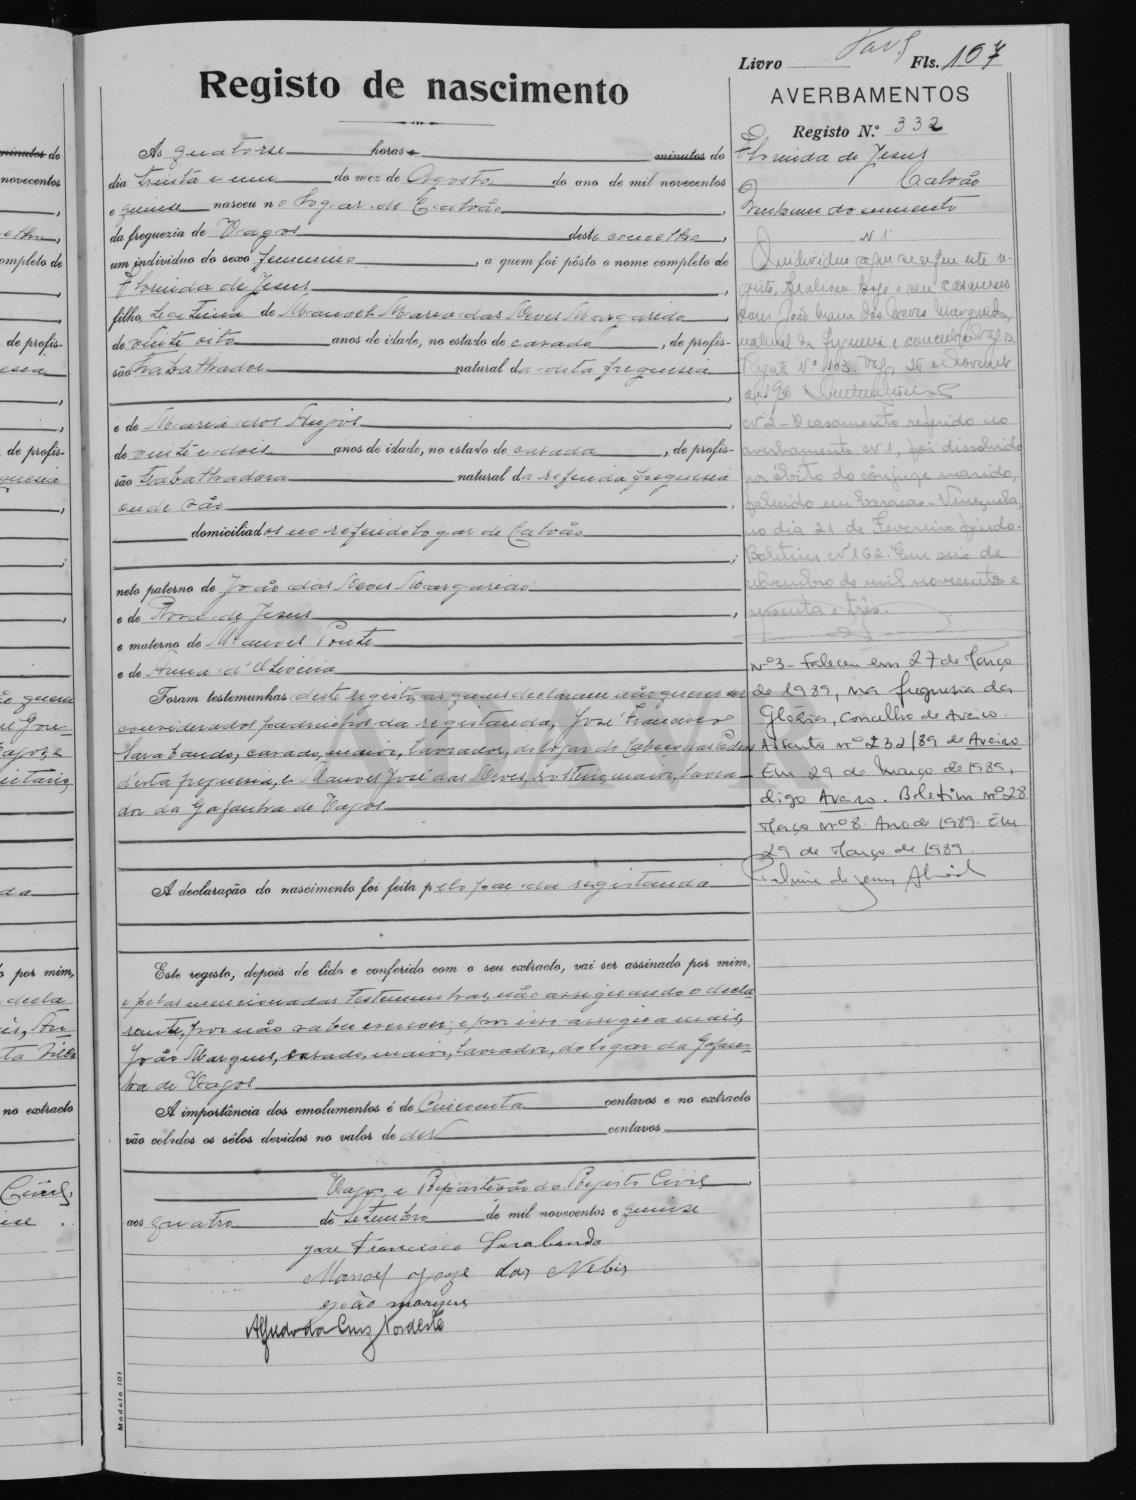 Livro Fls. 107
Registo de nascimento
AVERBAMENTOS
Registo N.º 332
Às quatorse horas e minutos do
dia trinta e um do mez de Agosto do ano de mil novecentos
e quinse nasceu no logar de Calvão,
da freguezia de Vagos deste concelho,
um individuo do sexo femenino, a quem foi pôsto o nome completo de
Florinda de Jesus,
filha legitima de Manoel Maria das Neves Margarido,
de vinte oito anos de idade, no estado de casado, de profis-
são trabalhador natural da dita freguesia
e de Maria dos Anjos
de vinte e dois anos de idade, no estado de casada, de profis-
são trabalhadora natural da referida freguesia
onde são
domiciliados no referido logar de Calvão
neto paterno de João das Neves Margarido
e de Rosa de Jesus,
e materno de Manoel Ponte
e de Anna d'Oliveira
Foram testemunhas deste registo, as quais declararam não querer ser
considerados padrinhos da registanda, José Francisco
Sarabando, casado, maior, lavrador, do logar de Cabeco das Pedras
d'esta freguesia, e Manoel José das Neves, solteiro, maior, lavra-
dor da Gafanha de Vagos
A declaração do nascimento foi feita pelo pae da registanda
Este registo, depois de lido e conferido com o seu extracto, vai ser assinado por mim,
e pelas mencionadas testemunhas, não assignando o decla-
rante, por não saber escrever, e por isso assigna mais,
João Marques, casado, maior, lavrador, do logar da Gafan-
ha de Vagos
A importância dos emolumentos é de Cincoenta centavos e no extracto
vão colados os sêlos devidos no valor de dez centavos
Vagos, e Repartição do Registo Civil,
aos quatro de Setembro de mil novecentos e quinse
José Francisco Sarabando
Manoel José das Nebes
João marques
Alfredo da Cruz Nordeste
Modelo 101
Florinda de Jesus
Calvão
Nenhum documento
N 1
O individuo a que se refere este re-
gisto, realisou hoje o seu casamento
com João Maria das Neves Margarido,
natural da freguesia e concelho de Vagos.
Registo Nº 103. Vagos, de Novembro
de 1936
Nº 2 - O casamento referido no
averbamento nº 1, foi dissolvido
por óbito do cônjuge marido,
falecido em Caracas - Venezuela,
no dia 21 de Fevereiro findo.
Boletim nº 162. Em seis de
de mil novecentos e
sessenta e três.
Nº 3 - Faleceu em 27 de Março
de 1989, na freguesia da
Glória, Concelho de Aveiro.
Assento nº 232/89 de Aveiro
Em 29 de Março de 1989,
digo Aveiro. Boletim nº 28
Março nº 8. Ano de 1989. Em
29 de Março de 1989.
ADAVR